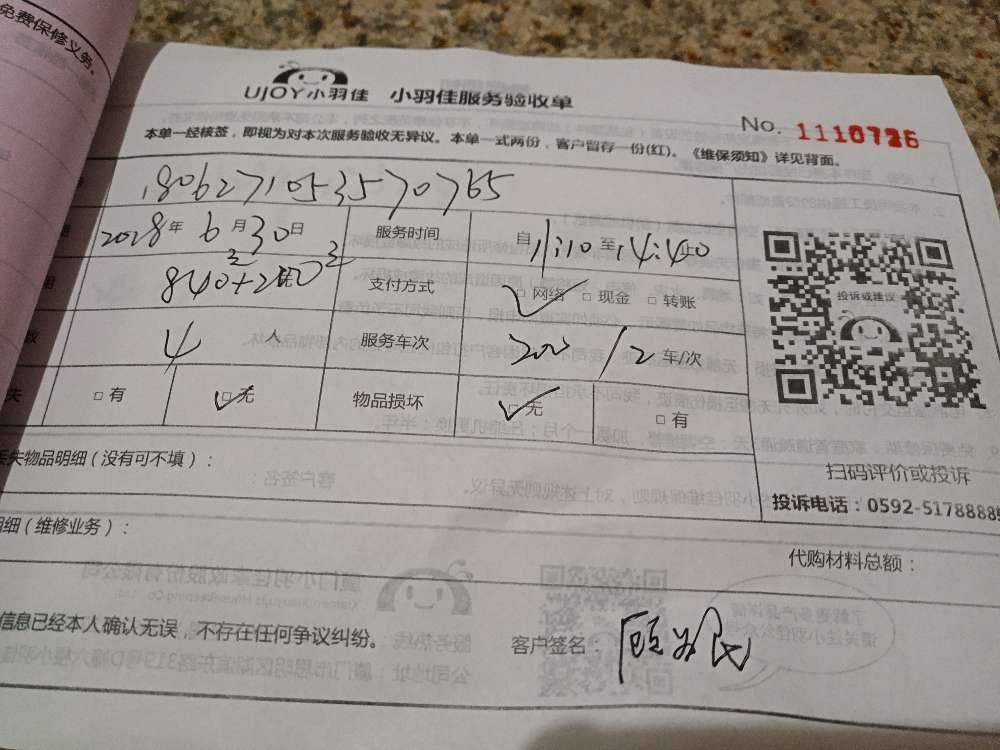 免费保修义务。
UJOY小羽佳 小羽佳服务验收单
No. 1110726
本单一经核签，即视为对本次服务验收无异议。本单一式两份，客户留存一份(红)。《维保须知》详见背面。
180627105357070765
2028年6月30日 服务时间 自11:10至14:40
840+200元 支付方式 □网络 □现金 □转账
4人 服务车次 200/2车/次
失 □有 □无 物品损坏 □无 □有
投诉或建议
扫码评价或投诉
投诉电话：0592-5178888
丢失物品明细（没有可不填）：
明细（维修业务）：
代购材料总额：
信息已经本人确认无误，不存在任何争议纠纷。
客户签名：